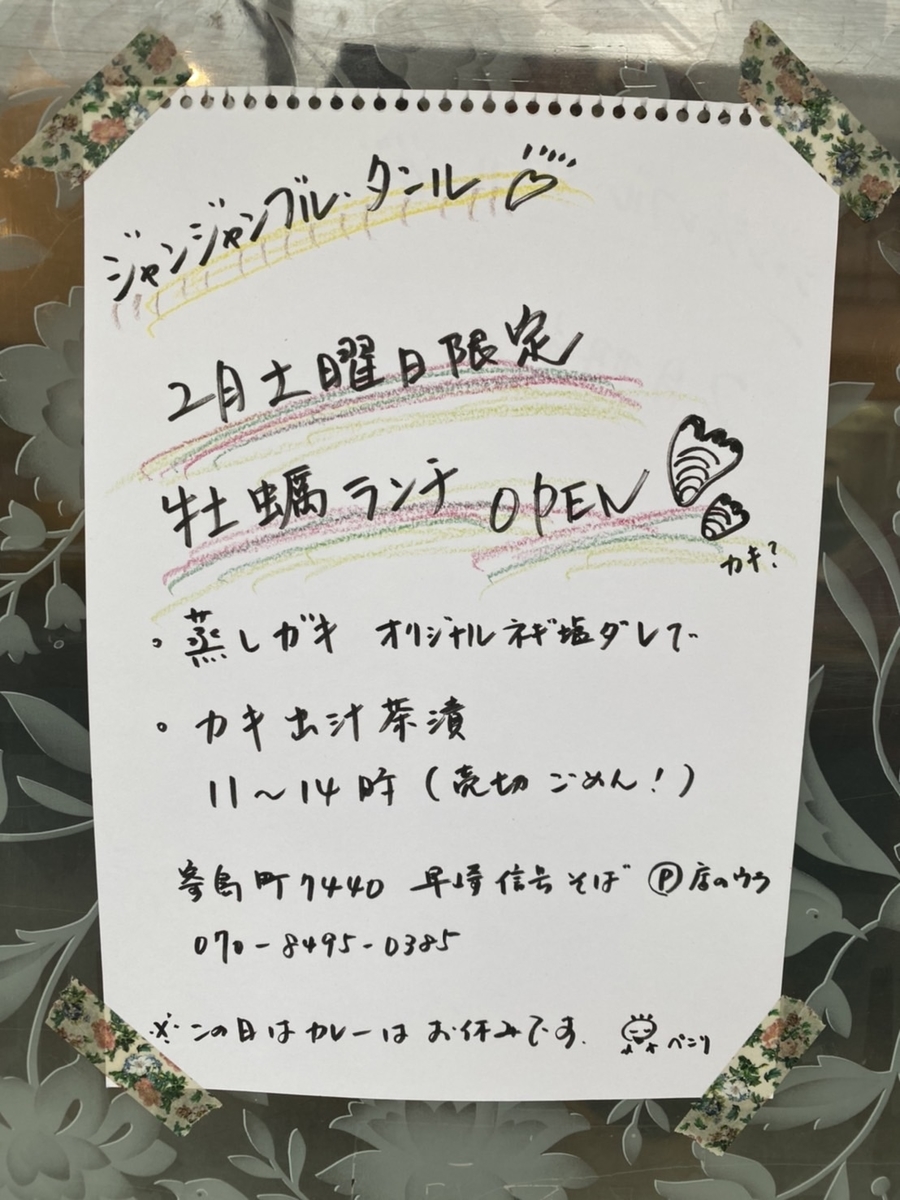 ジャンジャンブル・タンル
2月土曜日限定
牡蠣ランチ OPEN
カキ?
・蒸しガキ オリジナルネギ塩ダレで
・カキ出汁茶漬
11〜14時(売切ごめん!)
寄島町7440 早崎信号そば Ⓟ店のウラ
070-8495-0385
※この日はカレーはお休みです.
ペコリ